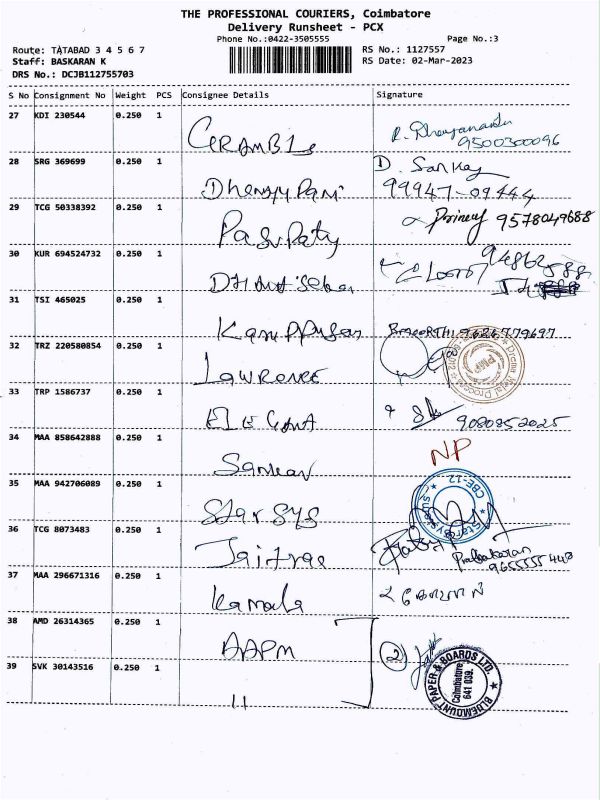 THE PROFESSIONAL COURIERS, Coimbatore
Delivery Runsheet - PCX
Phone No.:0422-3505555
Page No.:3
Route: TATABAD 3 4 5 6 7
RS No.: 1127557
Staff: BASKARAN K
RS Date: 02-Mar-2023
DRS No.: DCJB112755703
S No Consignment No Weight PCS Consignee Details Signature
27 KDI 230544 0.250 1
9500300096
28 SRG 369699 0.250 1 D. Sankay
99947-09444
29 TCG 50338392 0.250 1 Pasupaty 9578049688
30 KUR 694524732 0.250 1
31 TSI 465025 0.250 1 9626779697
32 TRZ 220580854 0.250 1 LAWRENCE
33 TRP 1586737 0.250 1 ELEGANT 9080852025
34 MAA 858642888 0.250 1 Sankar NP
35 MAA 942706089 0.250 1 Star sys CBE-12
36 TCG 8073483 0.250 1 Prabakaran
37 MAA 296671316 0.250 1 Kamala
38 AMD 26314365 0.250 1 AAPM 2
39 SVK 30143516 0.250 1 11
BLUEMOUNT PAPER & BOARDS LTD.
Coimbatore
641 039.